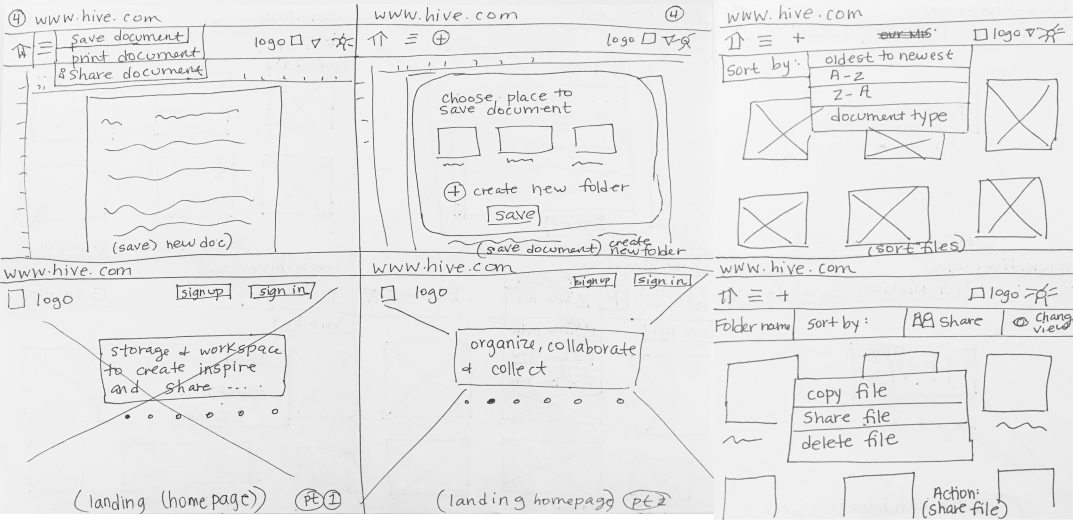 ④ www.hive.com
save document
print document
& Share document
logo
(save) new doc)
www.hive.com ④
+
logo
choose place to
save document
+ create new folder
save
(save document) create
new folder
www.hive.com
+ our MIS
logo
Sort by:
oldest to newest
A-Z
Z-A
document type
(sort files)
www.hive.com
logo
sign up
sign in
storage & workspace
to create inspire
and share ....
(landing (homepage)) pt 1
www.hive.com
logo
sign up
sign in
organize, collaborate
& collect
(landing homepage) pt 2
www.hive.com
+ logo
Folder name
sort by:
Share
Chang
view
copy file
Share file
delete file
Action:
(share file)